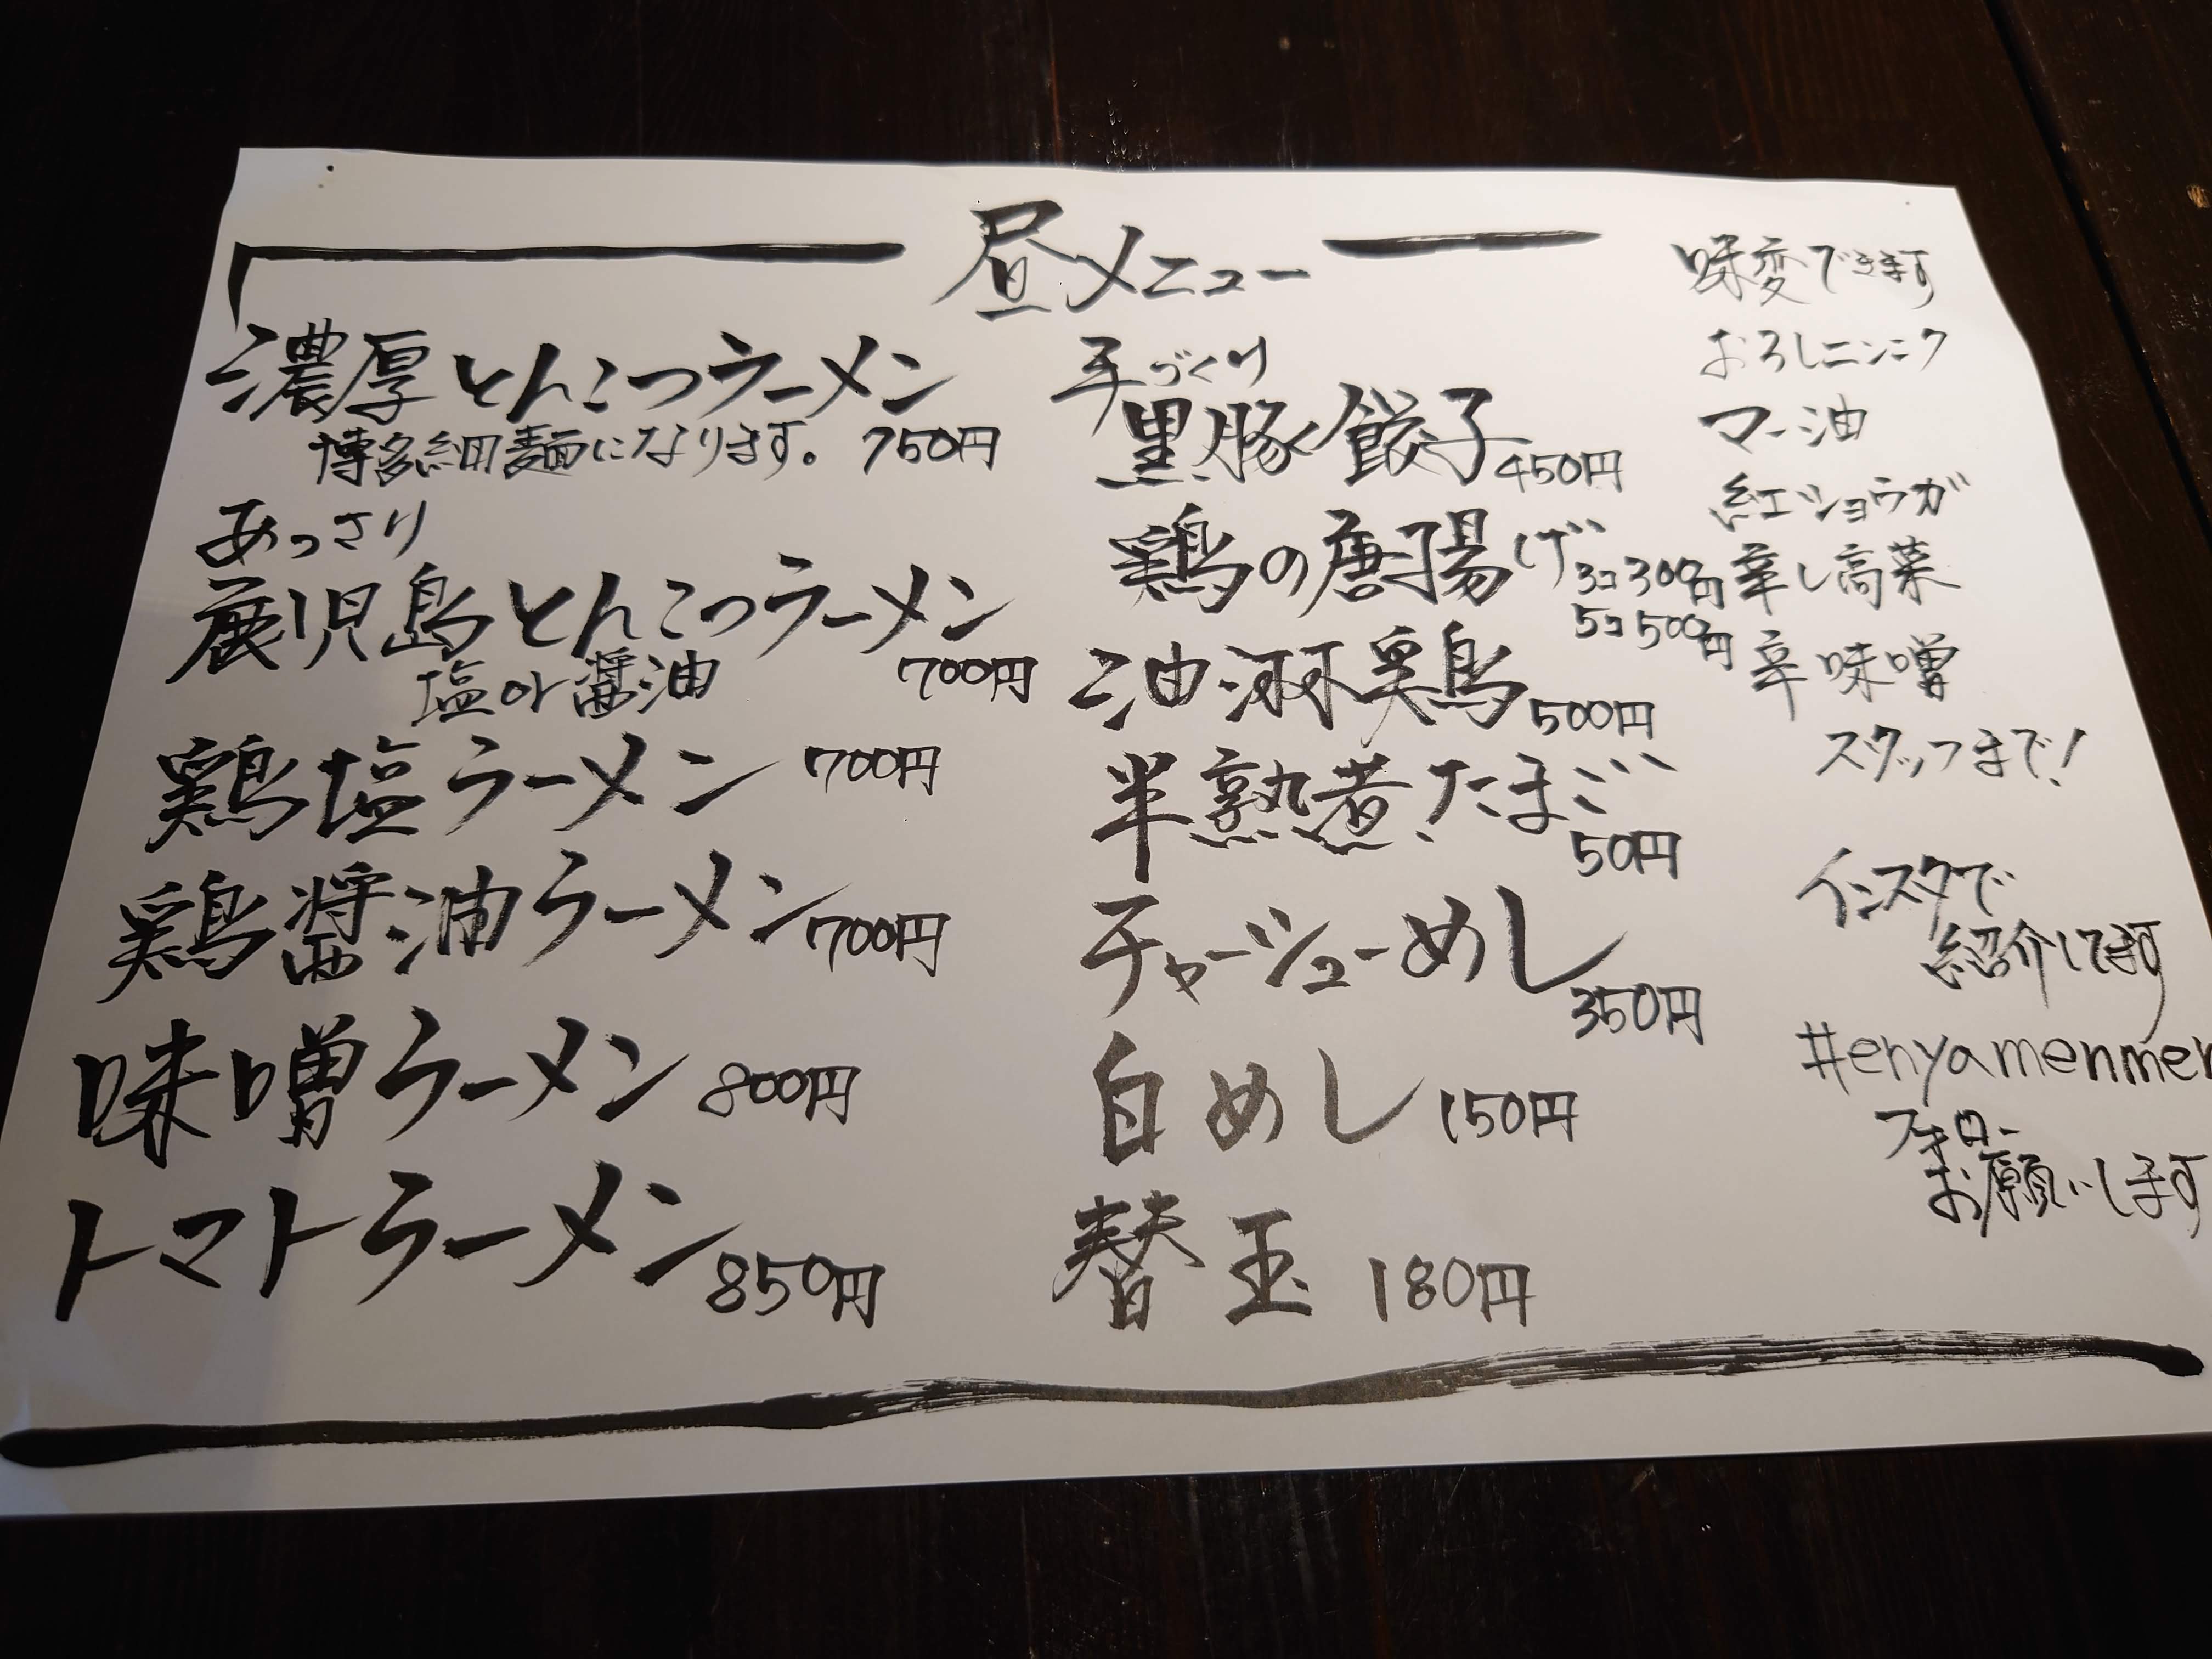 昼メニュー
濃厚とんこつラーメン
博多細麺になります。 750円
あっさり
鹿児島とんこつラーメン
塩or醤油 700円
鶏塩ラーメン 700円
鶏醤油ラーメン 700円
味噌ラーメン 800円
トマトラーメン 850円
手づくり
黒豚餃子 450円
鶏の唐揚げ 3コ300円
5コ500円
油淋鶏 500円
半熟煮たまご 50円
チャーシューめし 350円
白めし 150円
替玉 180円
味変できます
おろしニンニク
マー油
紅ショウガ
辛し高菜
辛味噌
スタッフまで!
インスタで
紹介してます
#enyamenmen
フォロー
お願いします